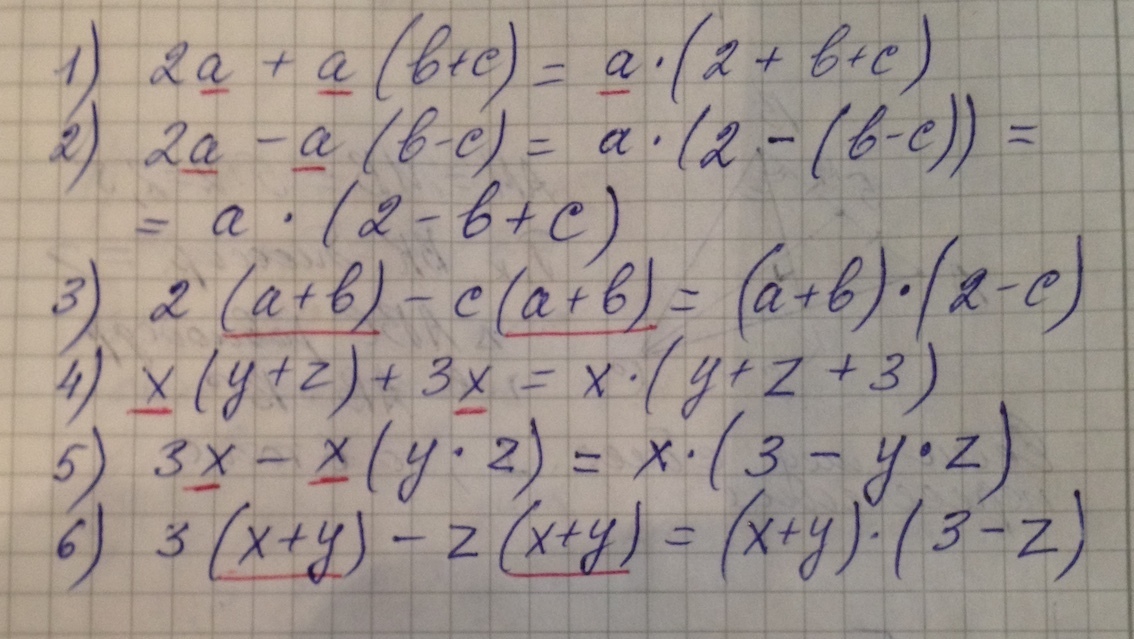 1) 2a + a (b+c) = a·(2 + b+c)
2) 2a - a (b-c) = a·(2 - (b-c)) =
= a · (2 - b + c)
3) 2 (a+b) - c (a+b) = (a+b)·(2-c)
4) x (y+z) + 3x = x·(y+z+3)
5) 3x - x (y·z) = x·(3 - y·z)
6) 3 (x+y) - z (x+y) = (x+y)·(3-z)